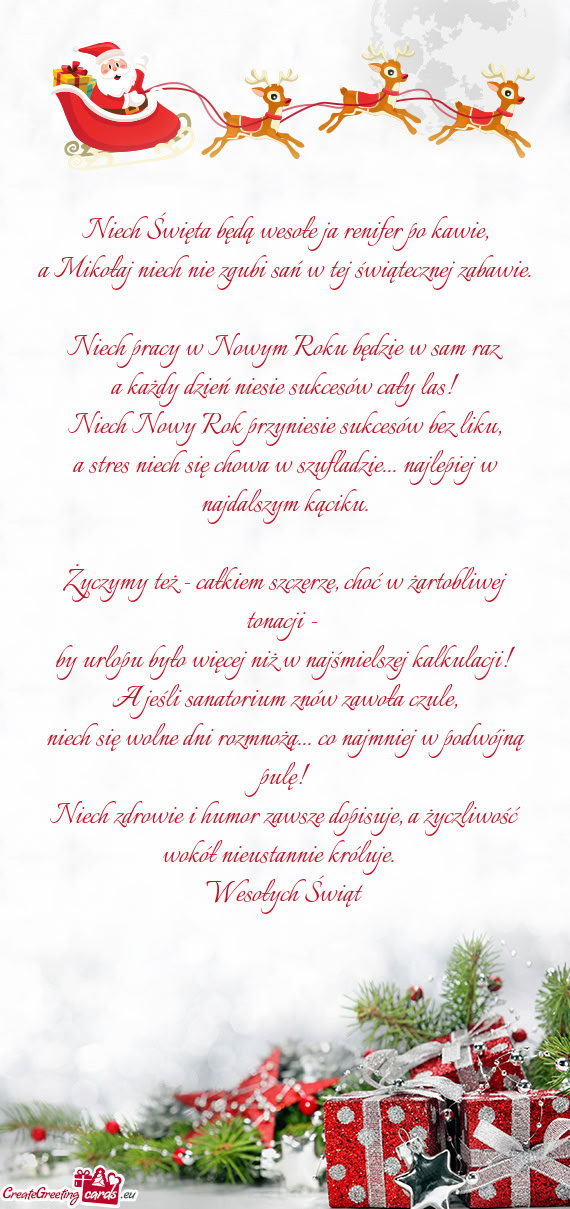 Niech Święta będą wesołe ja renifer po kawie,
a Mikołaj niech nie zgubi sań w tej świątecznej zabawie.
Niech pracy w Nowym Roku będzie w sam raz
a każdy dzień niesie sukcesów cały las!
Niech Nowy Rok przyniesie sukcesów bez liku,
a stres niech się chowa w szufladzie... najlepiej w
najdalszym kąciku.
Życzymy też - całkiem szczerze, choć w żartobliwej
tonacji -
by urlopu było więcej niż w najśmielszej kalkulacji!
A jeśli sanatorium znów zawoła czule,
niech się wolne dni rozmnożą... co najmniej w podwójną
pulę!
Niech zdrowie i humor zawsze dopisuje, a życzliwość
wokół nieustannie króluje.
Wesołych Świąt
CreateGreeting cards .eu